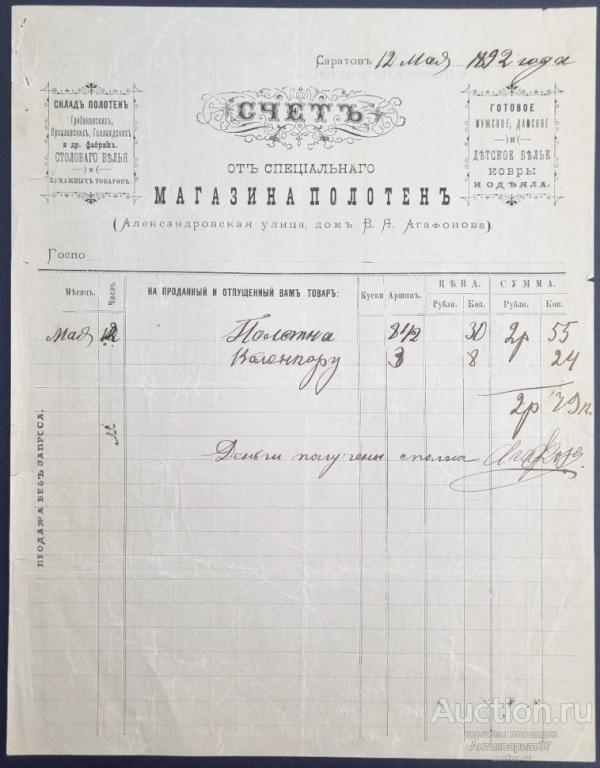 Саратовъ 12 Мая 1892 года
СКЛАДЪ ПОЛОТЕНЪ
Грибановскихъ,
Ярославскихъ, Голландскихъ
и др. фабрик.
СТОЛОВАГО БѢЛЬЯ
и
БУМАЖНЫХЪ ТОВАРОВЪ.
СЧЕТЪ
ОТЪ СПЕЦІАЛЬНАГО
МАГАЗИНА ПОЛОТЕНЪ
(Александровская улица, домъ В. Я. Агафонова)
ГОТОВОЕ
МУЖСКОЕ, ДАМСКОЕ
и
ДѢТСКОЕ БѢЛЬЕ
КОВРЫ
И ОДѢЯЛА.
Госпо
Мѣсяцъ. Число. НА ПРОДАННЫЙ И ОТПУЩЕННЫЙ ВАМЪ ТОВАРЪ: Куски Аршин. ЦѢНА. СУММА.
Рубли. Коп. Рубли. Коп.
Мая 12 Полотна 8 1/2 30 2р 55
3 8 24
2р 79к
Деньги получены сполна
ПРОДАЖА БЕЗЪ ЗАПРОСА.
Auction.ru
торговая площадка
Антиквариат37